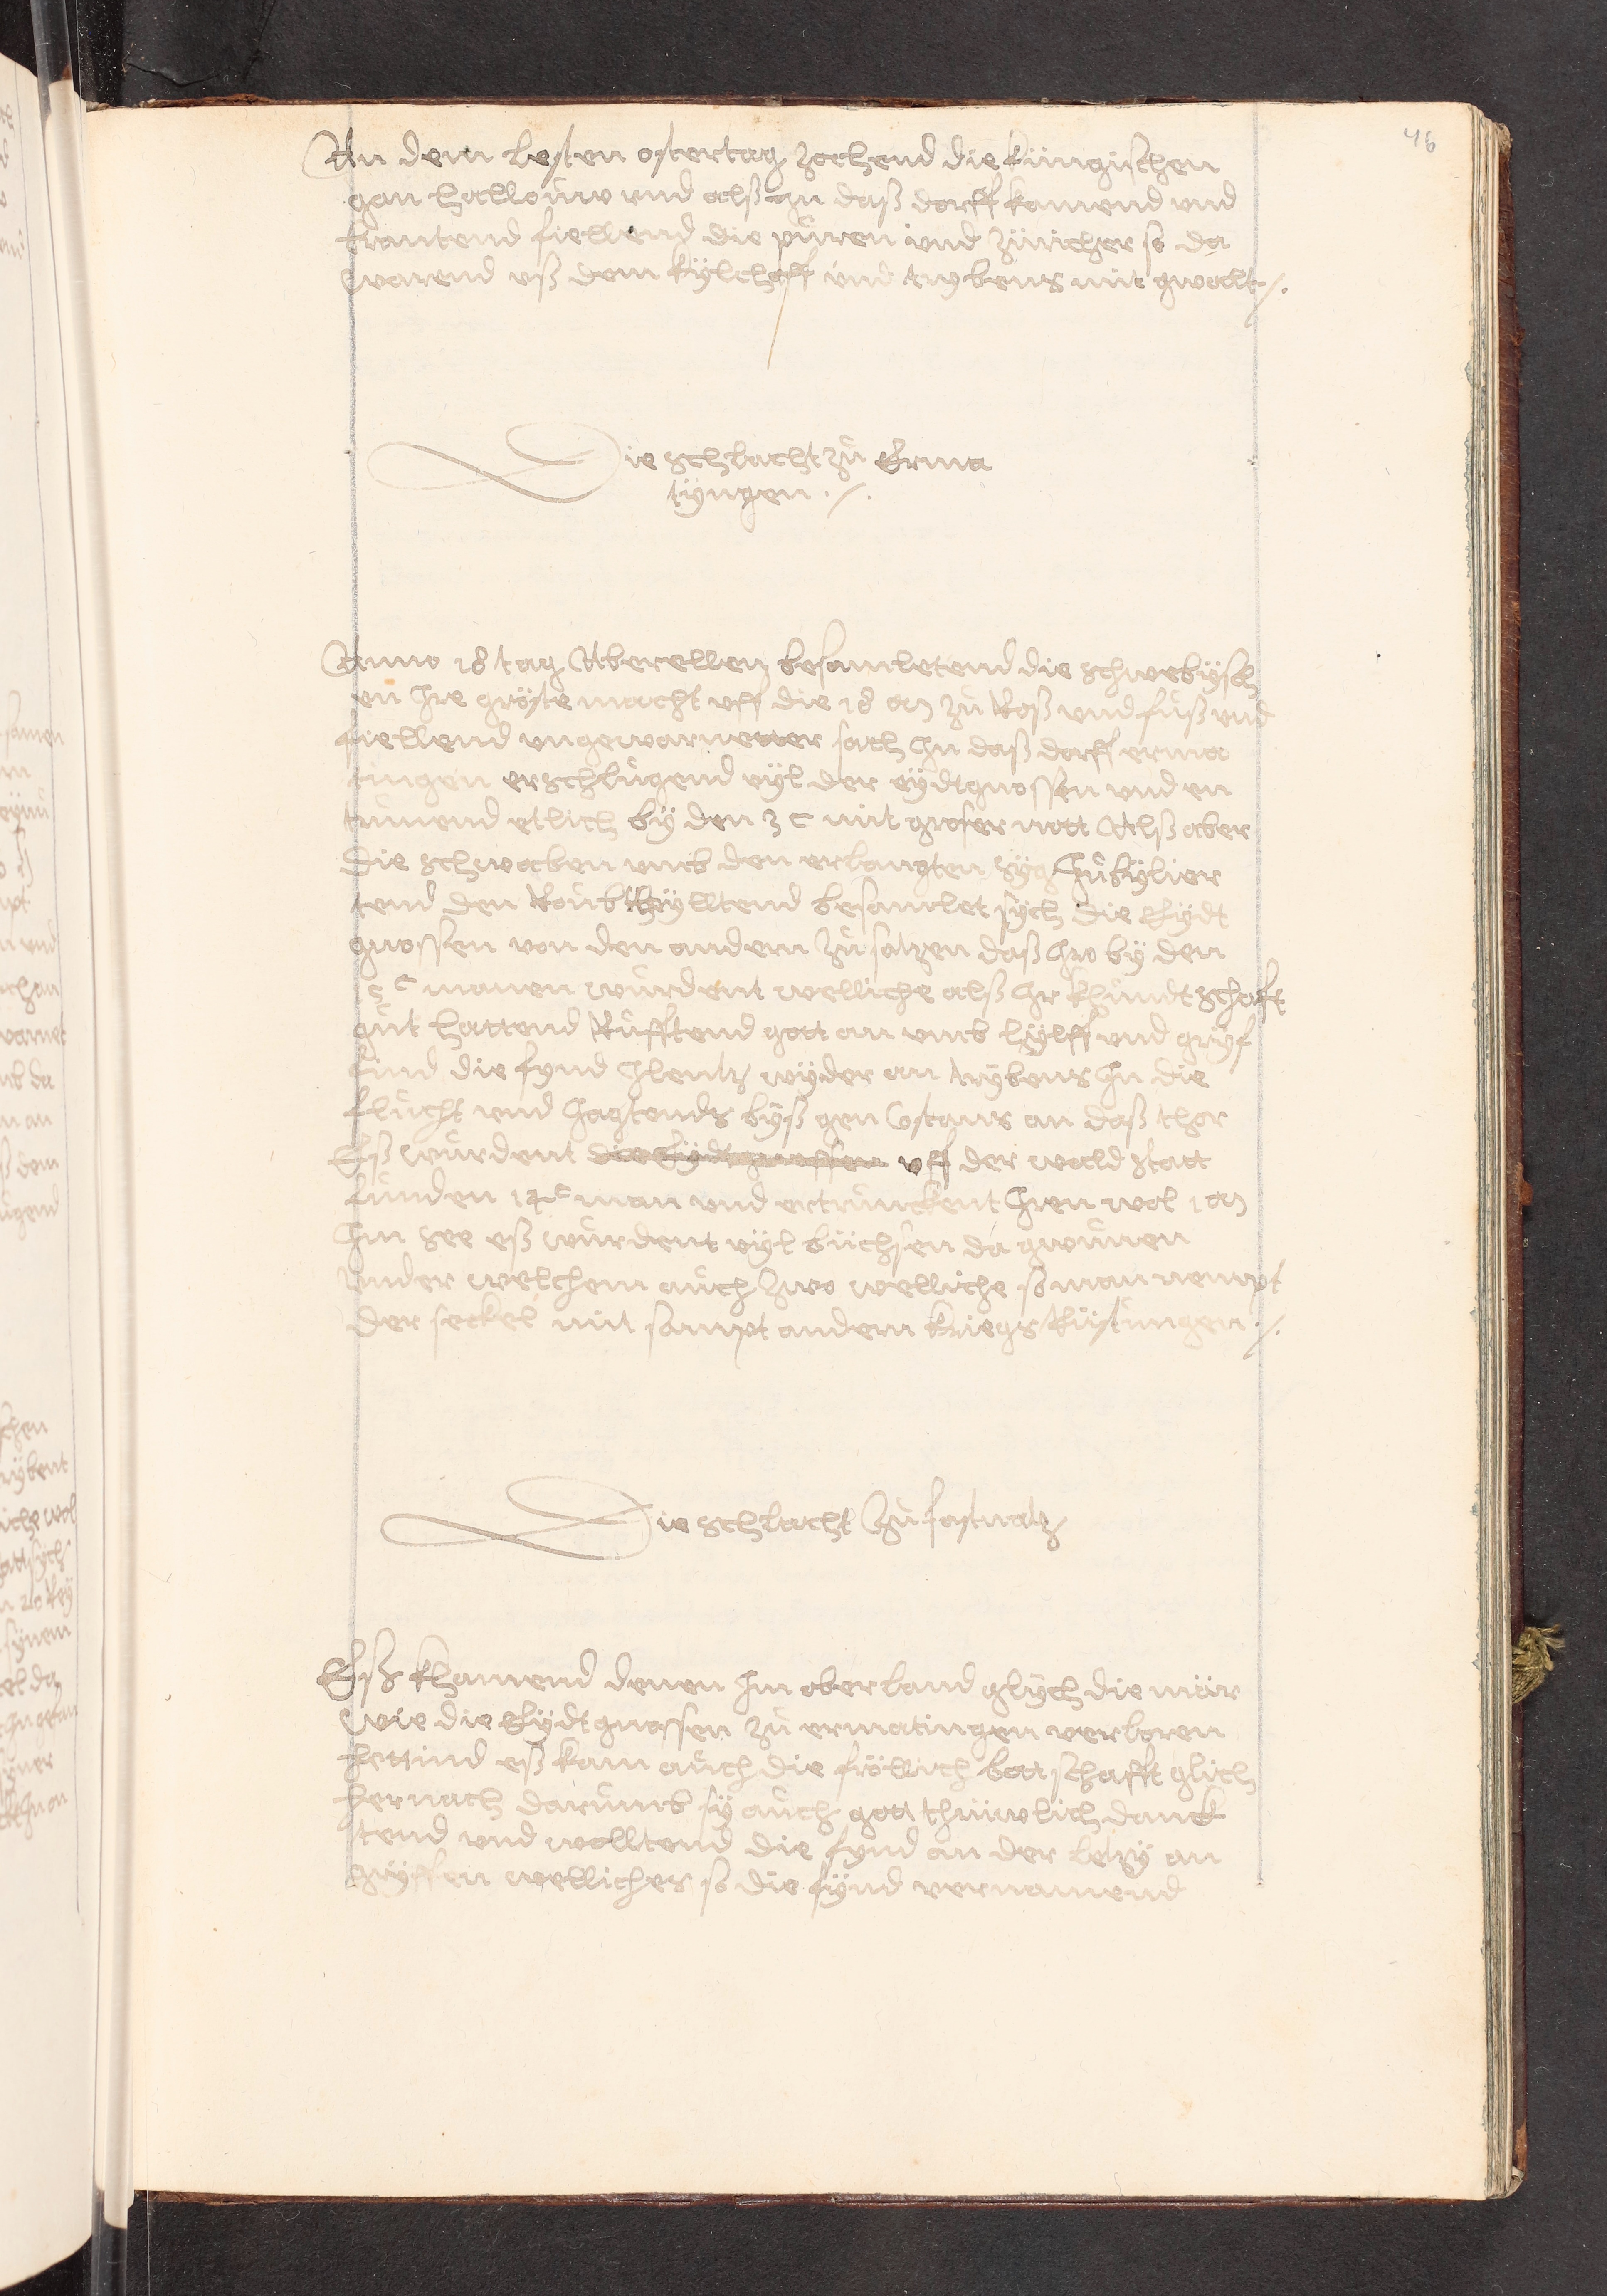 46
An dem lesten ostertag zochend die küngischen
gan hallouw und alß in daß dorff kamend und
brantend fiellend die püren und züricher so da
warend uß dem kÿlchoff und trybens mit gwallt ./.
Die schlacht zů Erma
tÿngen ./.
Anno 18 tag Aberellen besamletend die schwebÿsch
en Ire gröste macht uff die 18 M zů Roß und fůß und
fiellend ungewarneter sach In daß dorff erma
tingen erschlůgend vÿl der eÿdtgnossen und en
trünend etlich bÿ den 3 C mit groser nott Alß aber
die schwaben umb den erlangten sÿg Jubÿlier
tend den Roub theÿlltend besamlet sÿch die Eÿdt
gnossen von den andern zůsatzen daß Iro bÿ den
C manen wurdent welliche alß Ir khundtschaft
gůt hattend Růfftend gott an umb hÿlff und gryf
find die fynd Ilentz wÿder an trÿbens In die
flucht und Jagtends byß gen Costans an daß thor
Eß wurdent die Eÿdtgnossen uff der wald statt
funden man und ertrunckent Iren wol 1 M
Im see eß wurdent vÿl büchsen da gwunen
under welchem auch zwo welliche so man nempt
der seckel mit sampt andern kriegs Rüstungen ./.
Die schlacht zů frastnatz
Eß khamend denen Im oberland glÿch die mär
Wie die Eÿdtgnossen zů ermatingen verloren
hettind eß kam auch die fröllich bottschafft glich
hernach darumb sÿ auch gott thrüwlich danck
tend und wolltend die fynd an der letzÿ an
grÿffen wellicher so die fÿnd vernamend